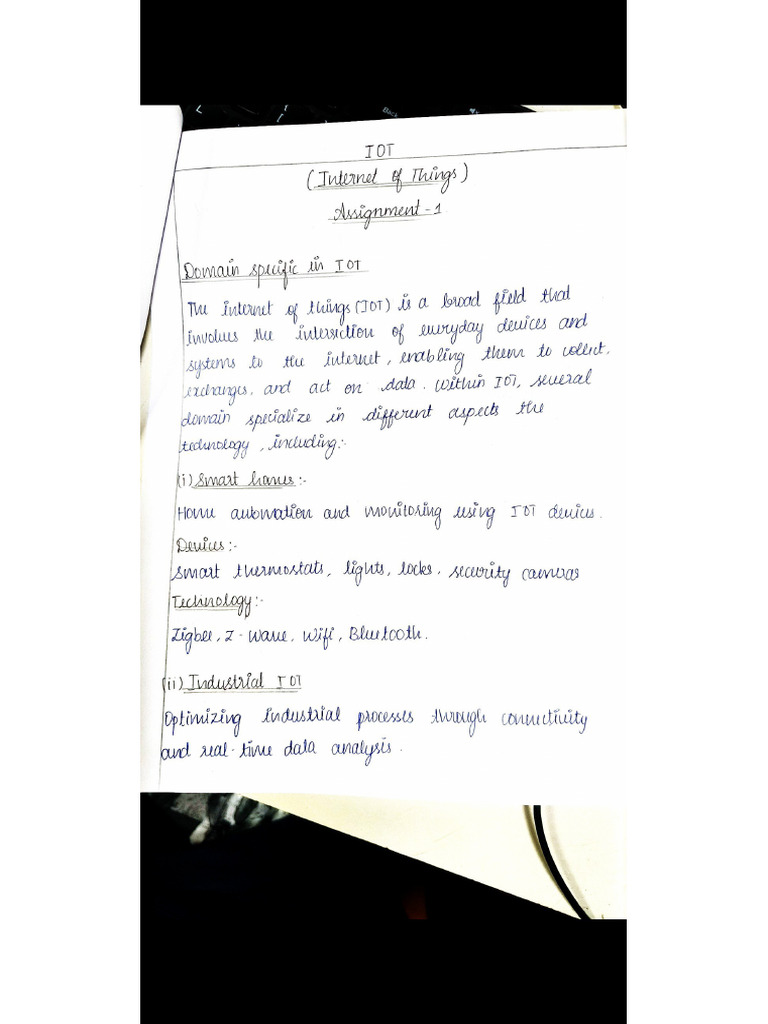 IOT
(Internet of Things)
Assignment-1
Domain specific in IOT
The internet of things (IOT) is a broad field that
involves the intersiction of everyday devices and
systems to the internet, enabling them to collect,
exchanges, and act on data. Within IOT, several
domain specialize in different aspects the
technology, including:-
(i) Smart homes:-
Home automation and monitoring using IOT devices.
Devices:-
Smart thermostats, lights, locks, security cameras
Technology:-
Zigbee, Z-wave, Wifi, Bluetooth.
(ii) Industrial IOT
Optimizing industrial processes through connectivity
and real-time data analysis.